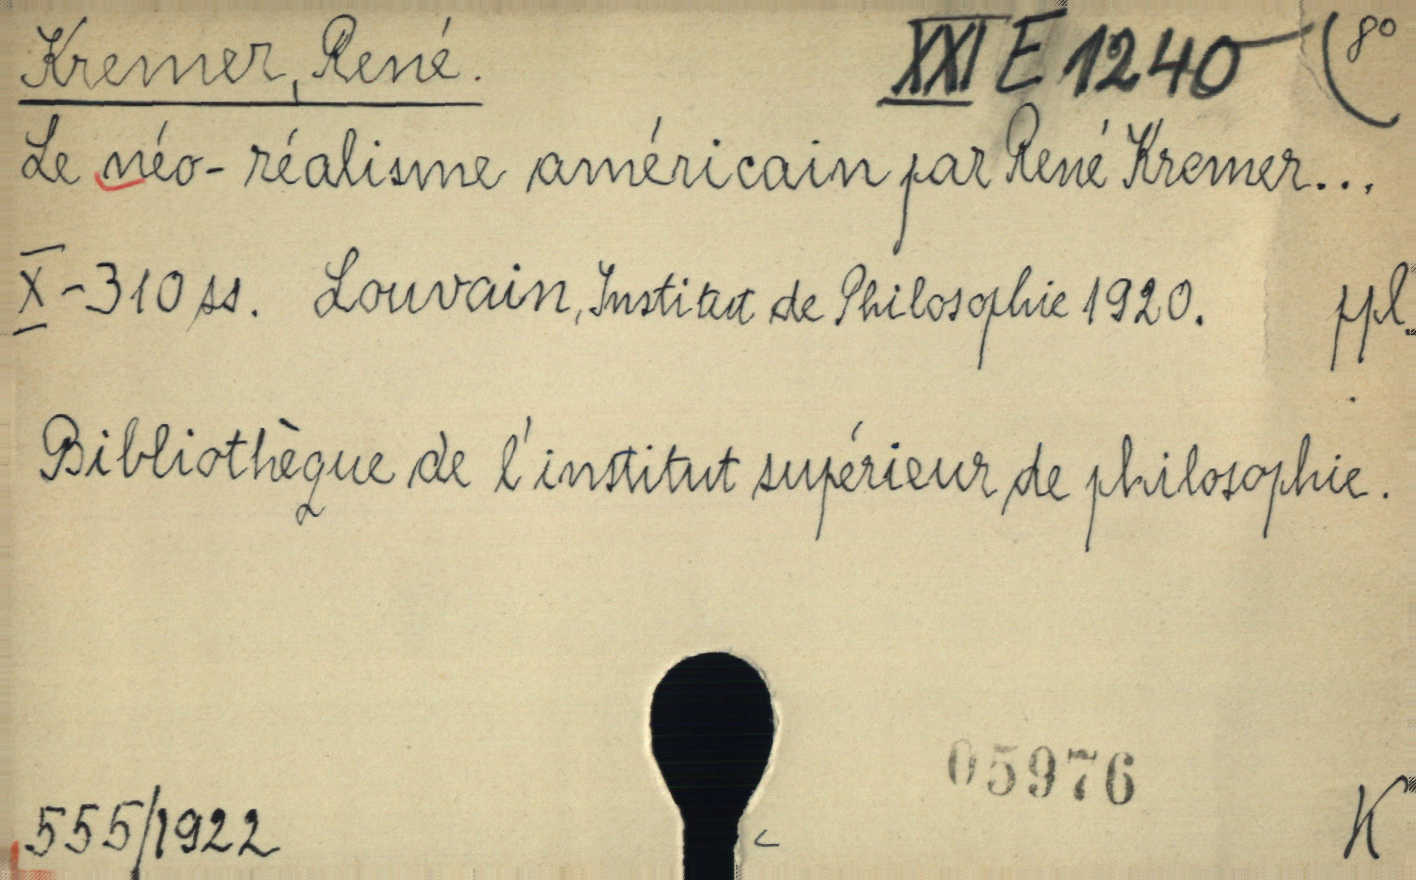 Kremer, René.
XXI E 1240
8°
Le néo-réalisme américain par René Kremer...
X-310 ss. Louvain, Institut de Philosophie 1920. ppl.
Bibliothèque de l'institut supérieur de philosophie.
05976
555/1922
K